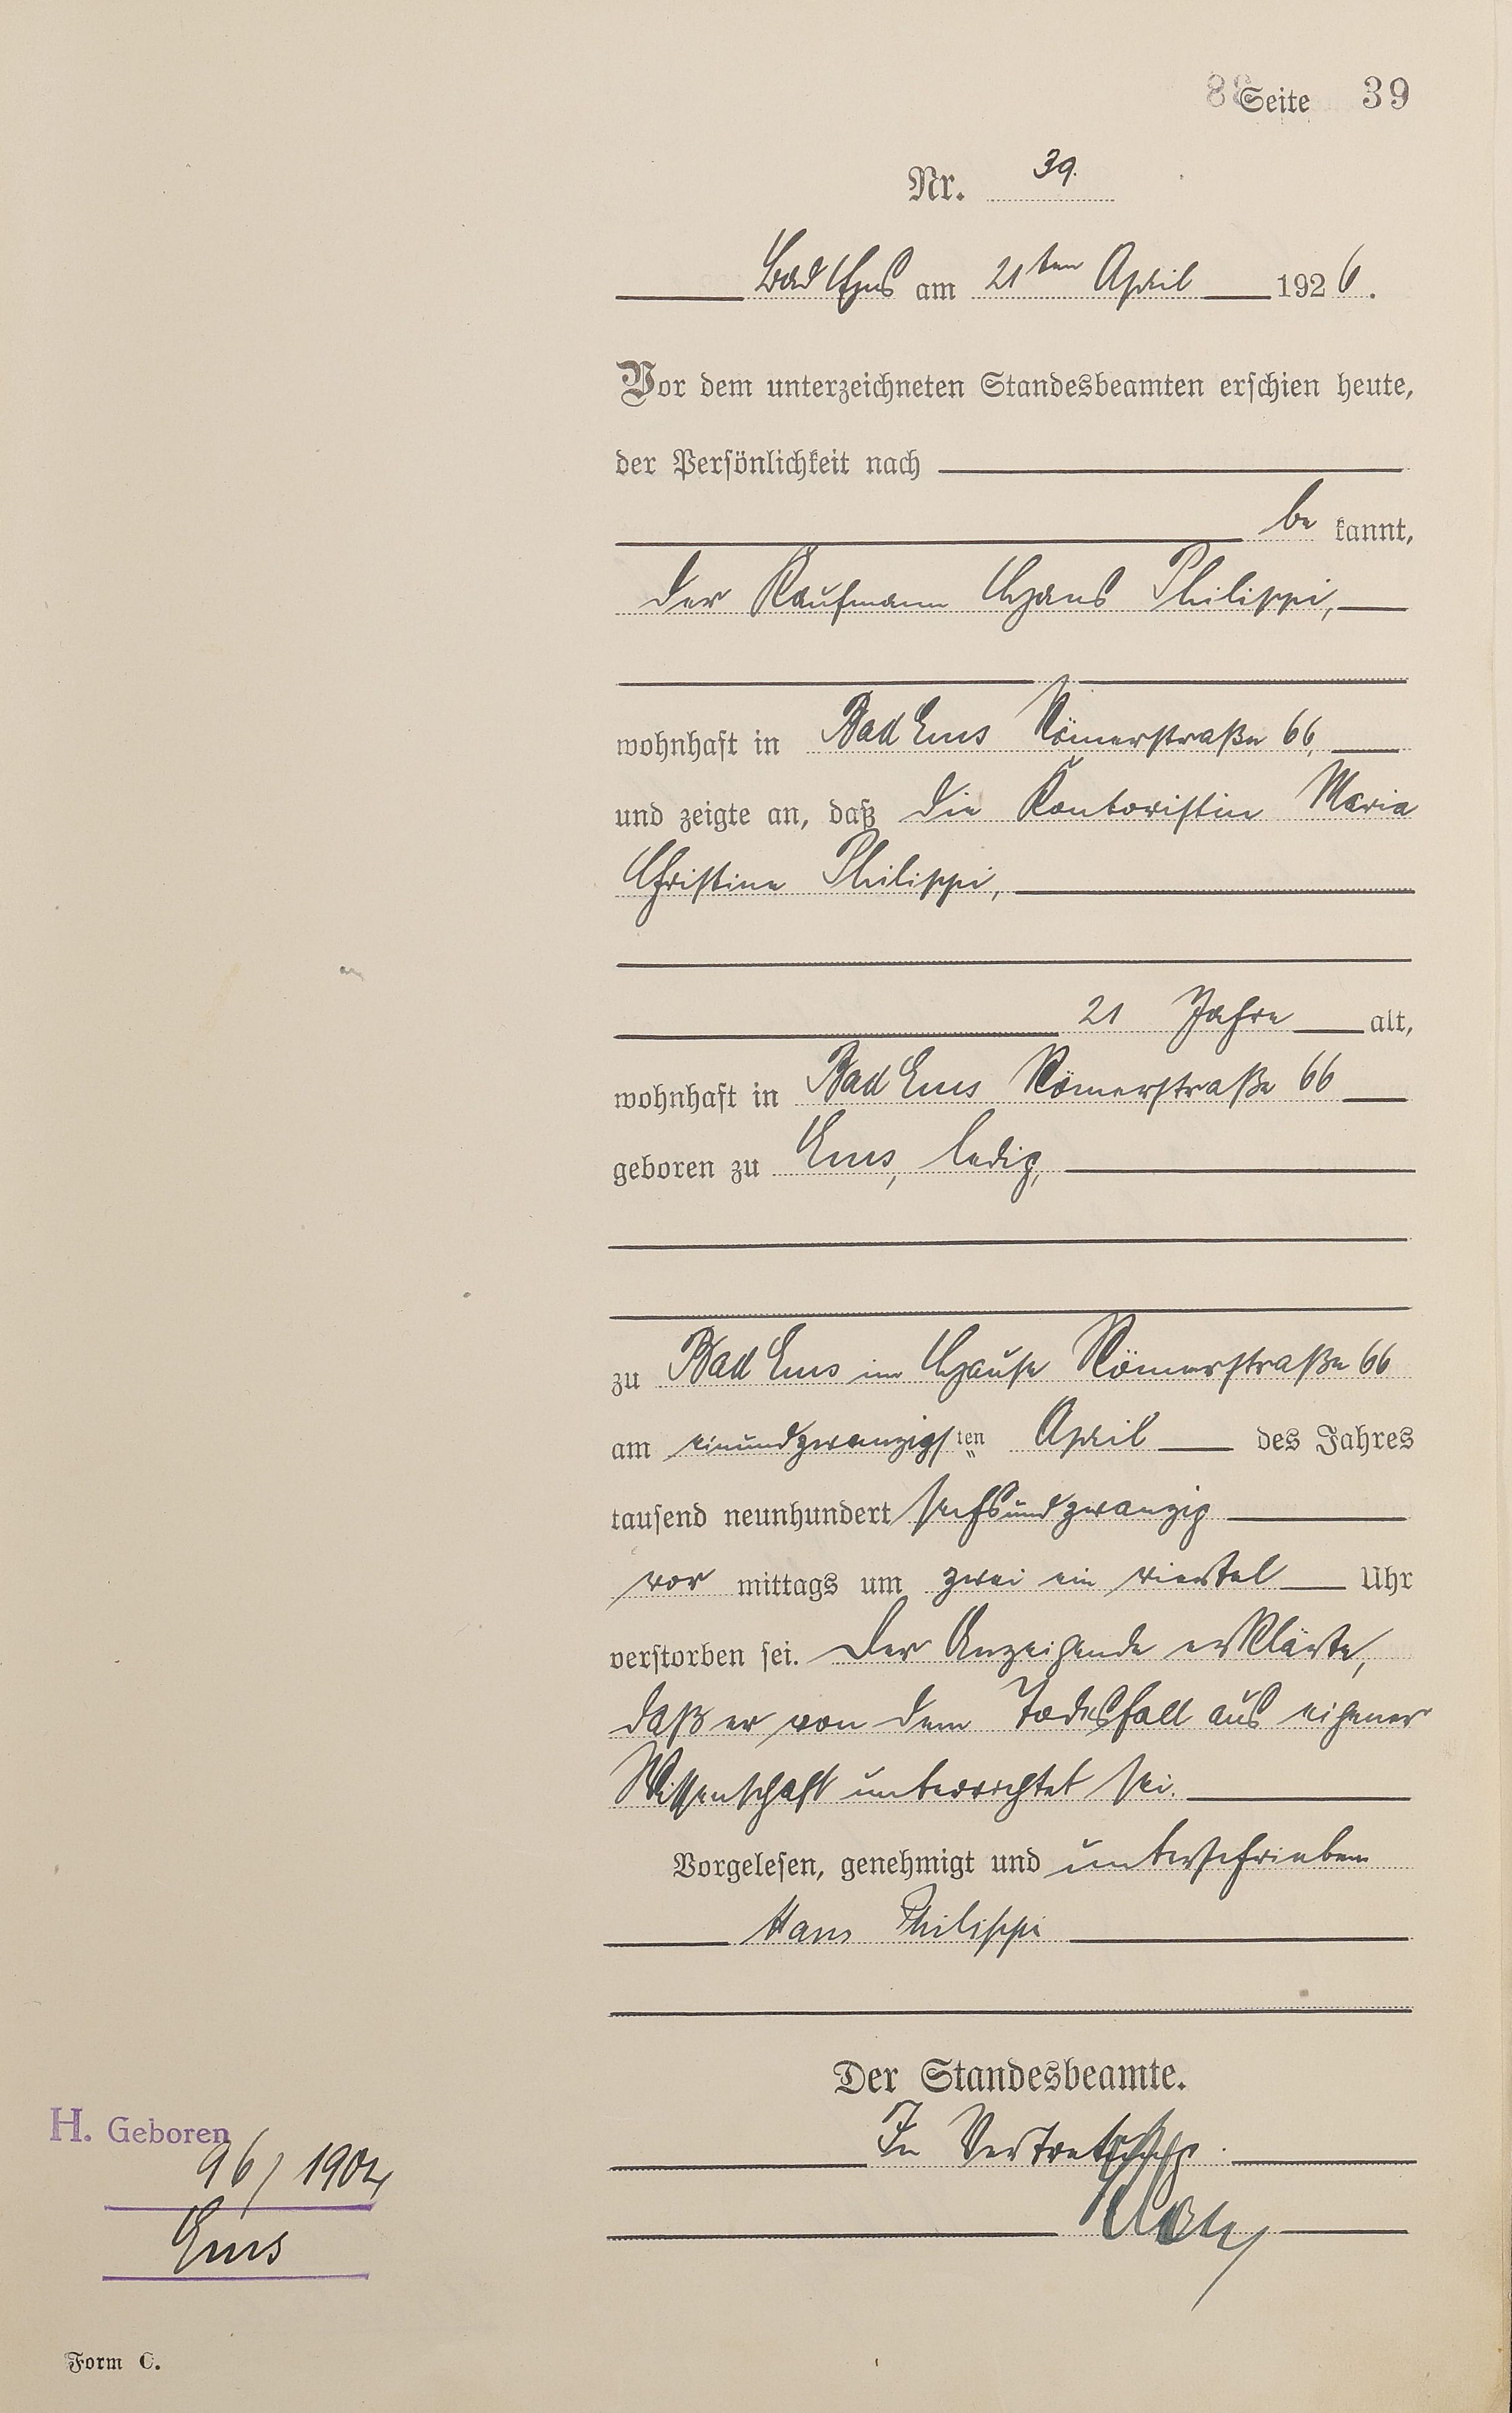 Seite 39
Nr. 39.
Bad Ems am 21ten April 1926.
Vor dem unterzeichneten Standesbeamten erschien heute,
der Persönlichkeit nach
be kannt,
der Kaufmann Hans Philippi,
wohnhaft in Bad Ems Römerstraße 66,
und zeigte an, daß die Kontoristin Maria
Christine Philippi,
21 Jahre alt,
wohnhaft in Bad Ems Römerstraße 66
geboren zu Ems, ledig,
zu Bad Ems im Hause Römerstraße 66
am einundzwanzigsten April des Jahres
tausend neunhundert sechsundzwanzig
vor mittags um zwei ein viertel Uhr
verstorben sei. Der Anzeigende erklärte,
daß er von dem Todesfall aus eigener
Wissenschaft unterrichtet sei.
Vorgelesen, genehmigt und unterschrieben
Hans Philippi
Der Standesbeamte.
In Vertretung.
H. Geboren
96/1904
Ems
Form C.